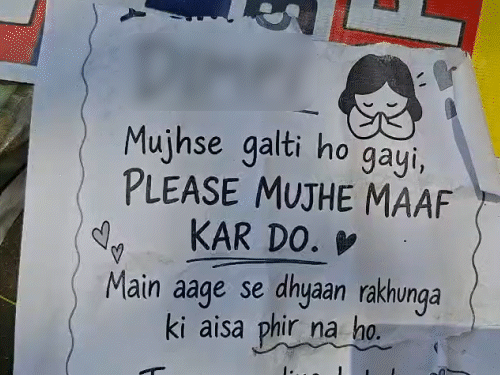 Mujhse galti ho gayi,
PLEASE MUJHE MAAF
KAR DO.
Main aage se dhyaan rakhunga
ki aisa phir na ho.